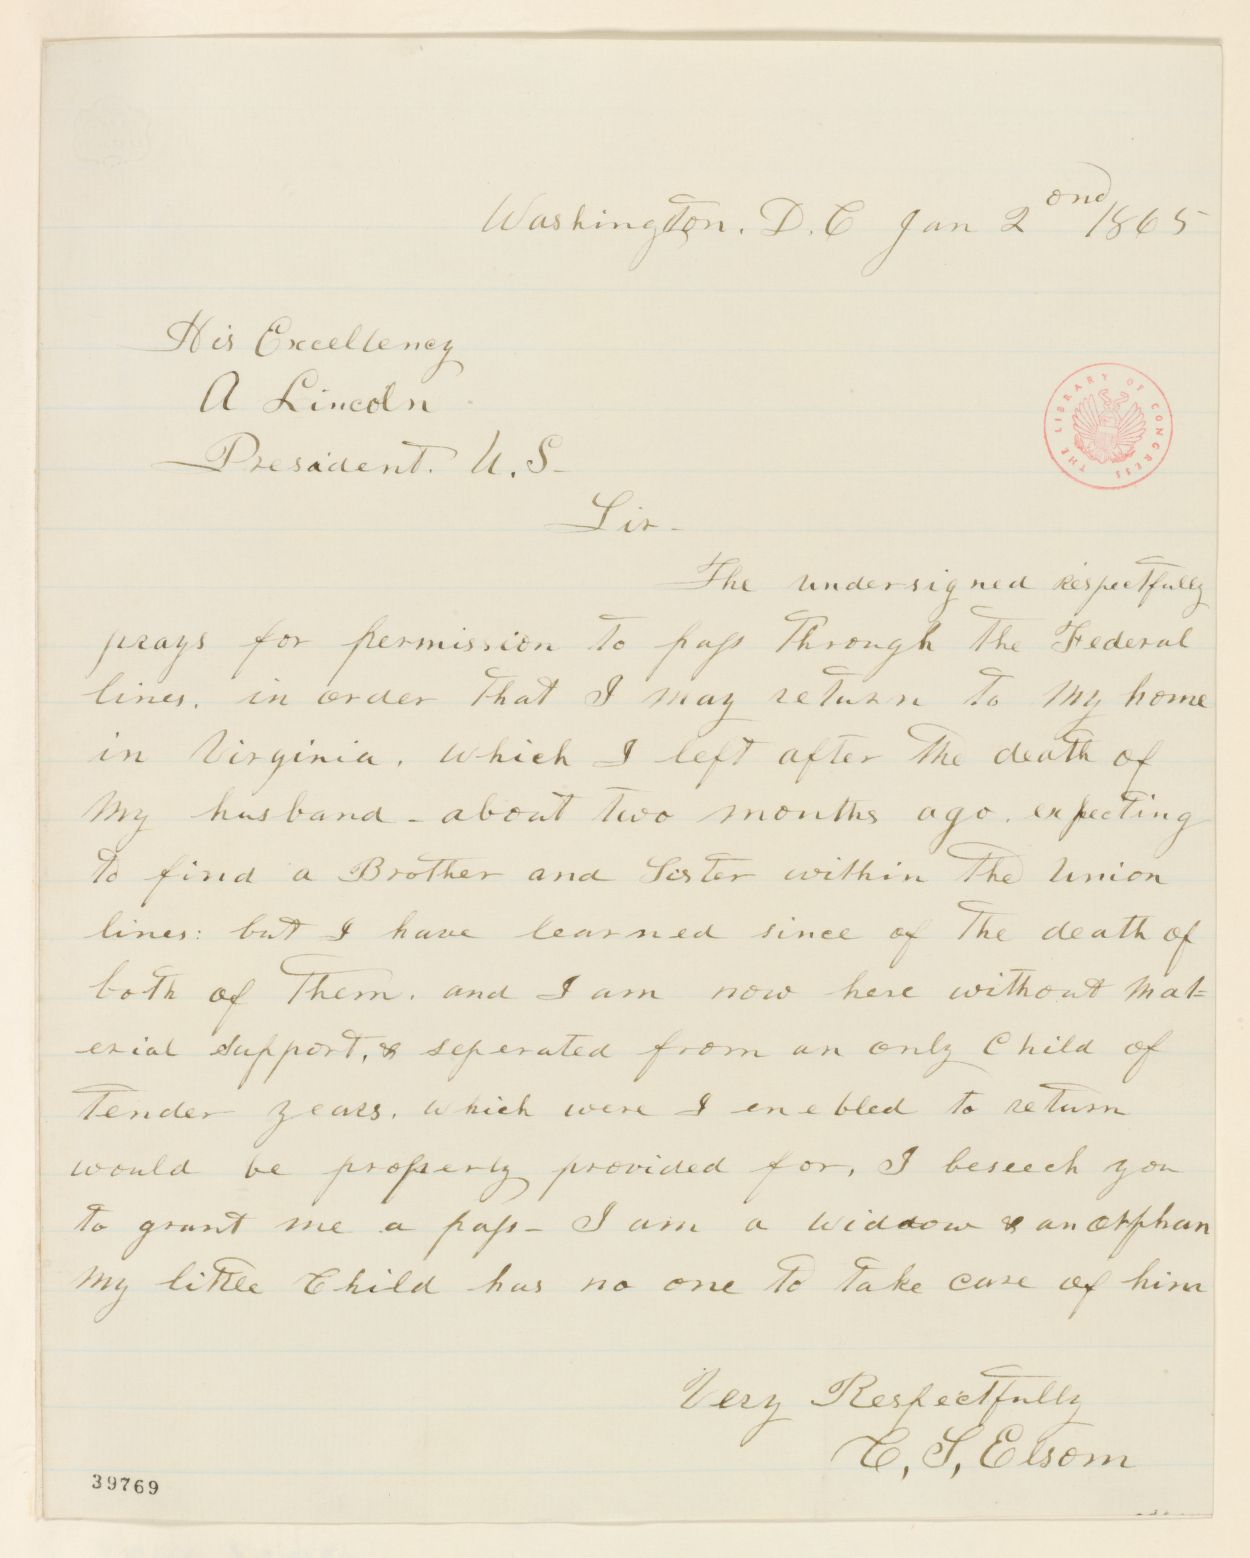 Washington. D. C Jan 2ond 1865
His Excellency
A Lincoln
President. U. S-
THE LIBRARY OF CONGRESS
Sir-
The undersigned respectfully
prays for permission to pass through the Federal
lines. in order that I may return to my home
in Virginia. which I left after the death of
my husband - about two months ago. expecting
to find a Brother and Sister within the Union
lines: but I have learned since of the death of
both of them. and I am now here without mat=
erial support, & seperated from an only Child of
tender years. which were I enebled to return
would be properly provided for, I beseech you
to grant me a pass- I am a widdow & an orphan
my little Child has no one to take care of him
Very Respectfully
C, S, Elsom
39769